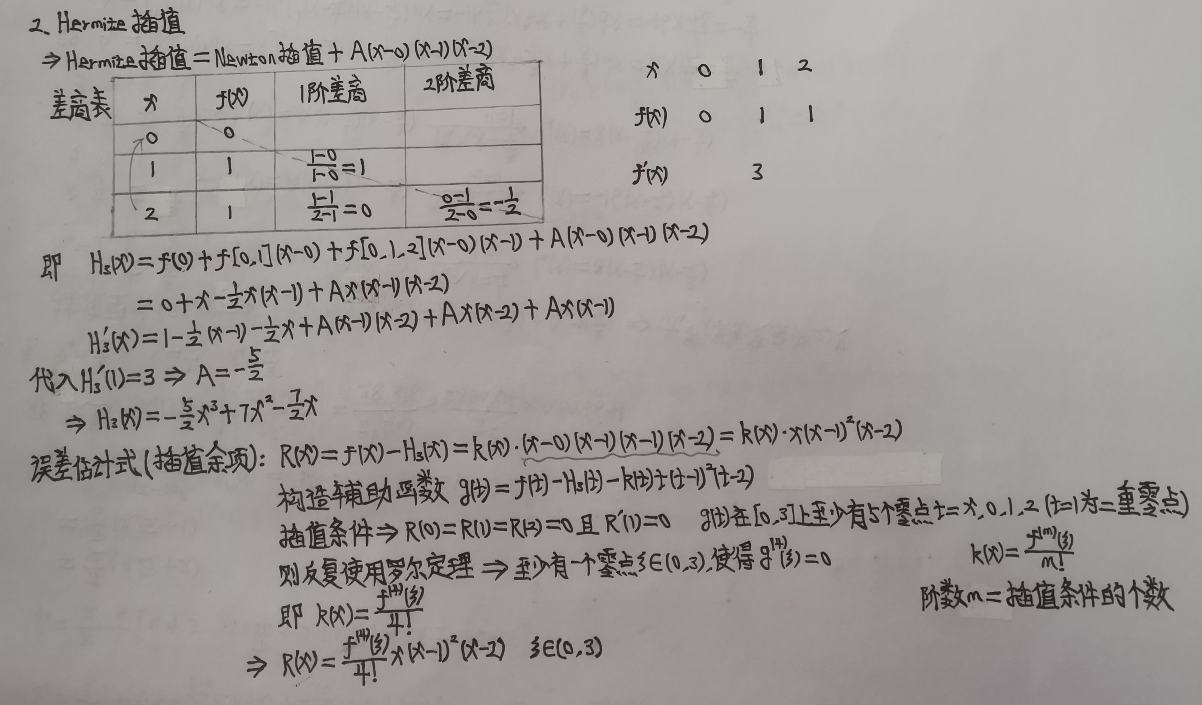 2. Hermite 插值
⇒ Hermite插值 = Newton插值 + A(x-0)(x-1)(x-2)
x 0 1 2
f(x) 0 1 1
f'(x) 3
差商表 x f(x) 1阶差商 2阶差商
0 0
1 1 (1-0)/(1-0)=1
2 1 (1-1)/(2-1)=0 (0-1)/(2-0)=-1/2
即 H₃(x)=f(0)+f[0,1](x-0)+f[0,1,2](x-0)(x-1)+A(x-0)(x-1)(x-2)
=0+x-1/2x(x-1)+Ax(x-1)(x-2)
H₃'(x)=1-1/2(x-1)-1/2x+A(x-1)(x-2)+Ax(x-2)+Ax(x-1)
代入H₃'(1)=3 ⇒ A=-5/2
⇒ H₃(x)=-5/2x³+7x²-7/2x
误差估计式(插值余项): R(x)=f(x)-H₃(x)=k(x)·(x-0)(x-1)(x-1)(x-2)=k(x)·x(x-1)²(x-2)
构造辅助函数 g(t)=f(t)-H₃(t)-k(t)t(t-1)²(t-2)
插值条件⇒R(0)=R(1)=R(2)=0 且 R'(1)=0 g(t)在[0,3]上至少有5个零点t=x,0,1,2 (t=1为二重零点)
则反复使用罗尔定理 ⇒ 至少有一个零点ξ∈(0,3),使得g⁽⁴⁾(ξ)=0
k(x)=f⁽ᵐ⁾(ξ)/m!
即 k(x)=f⁽⁴⁾(ξ)/4!
阶数m=插值条件的个数
⇒ R(x)=f⁽⁴⁾(ξ)/4! x(x-1)²(x-2) ξ∈(0,3)